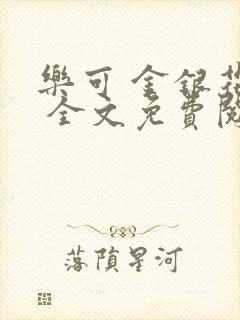 樂可 金銀花
全文免費閱
落隕星河